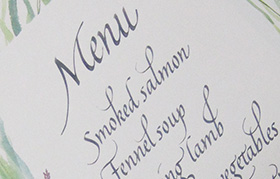 Menu
Smoked salmon
Fennel soup
lamb &
vegetables